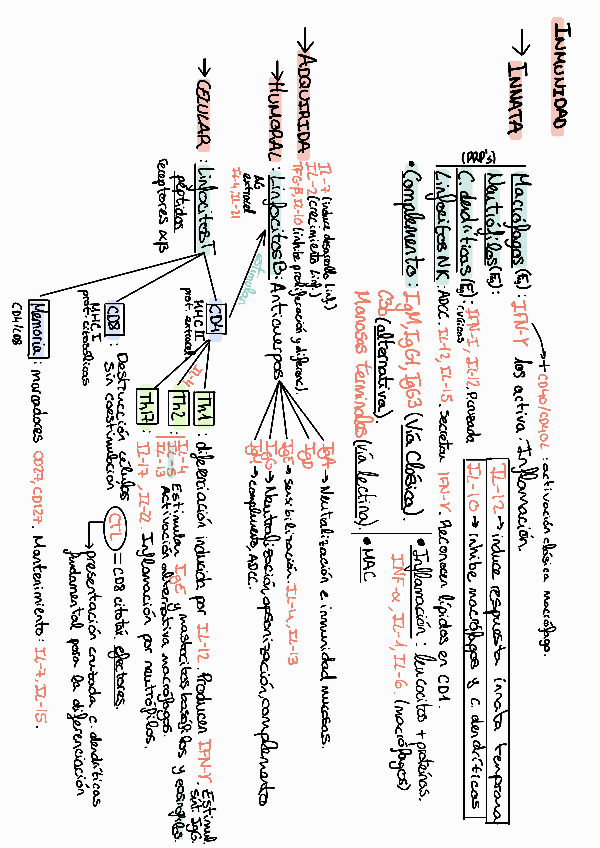 INMUNIDAD
→ INNATA
(PRR's)
Macrófagos (Eɣ): IFN-γ los activa. Inflamación.
→ + CD40/CD40L : activación clásica macrófago.
Neutrófilos (Eɣ):
C. dendríticas (Eɣ): IFN-I, IL-12. Presenta
Linfocitos NK: ADCC. IL-12, IL-15. Secretan IFN-γ. Reconocen lípidos en CD1.
IL-12 → induce respuesta innata temprana
IL-10 → inhibe macrófagos y c. dendríticas
• Complemento: IgM, IgG1, IgG3 (Vía clásica).
C3b (alternativa)
Manosas terminales (vía lectina)
• Inflamación: leucocitos + proteínas.
TNF-α, IL-1, IL-6 (macrófagos)
• MAC
→ ADQUIRIDA
IL-7 (induce desarrollo linf.)
IL-2 (crecimiento linf.)
TFG-β, IL-10 (inhibe proliferación y diferenc.)
→ HUMORAL: Linfocitos B: Anticuerpos
AG extracel
IL-4, IL-21
IgA → Neutralización e inmunidad mucosas.
IgD
IgE → sensibilización. IL-4, IL-13
IgG → Neutralización, opsonización, complemento
IgM → complemento, ADCC.
estimulan
→ CELULAR: Linfocitos T
péptidos
receptores αβ
CD4
MHC II
prot. extracel
IL4
Th1 : diferenciación inducida por IL-12. Producen IFN-γ. Estimul. sint. IgG.
Th2 : IL-4 IL-5 IL-13 Estimulan IgE y mastocitos, basófilos y eosinófilos.
Activación alternativa macrófagos.
Th17 : IL-17, IL-22. Inflamación por neutrófilos.
CD8 : Destrucción células
sin coestimulación
MHC I
prot. citosólicas
CTL = CD8 citotox efectores.
→ presentación cruzada c. dendríticas
fundamental para la diferenciación
Memoria: marcadores CD27, CD127. Mantenimiento: IL-7, IL-15.
CD4/CD8